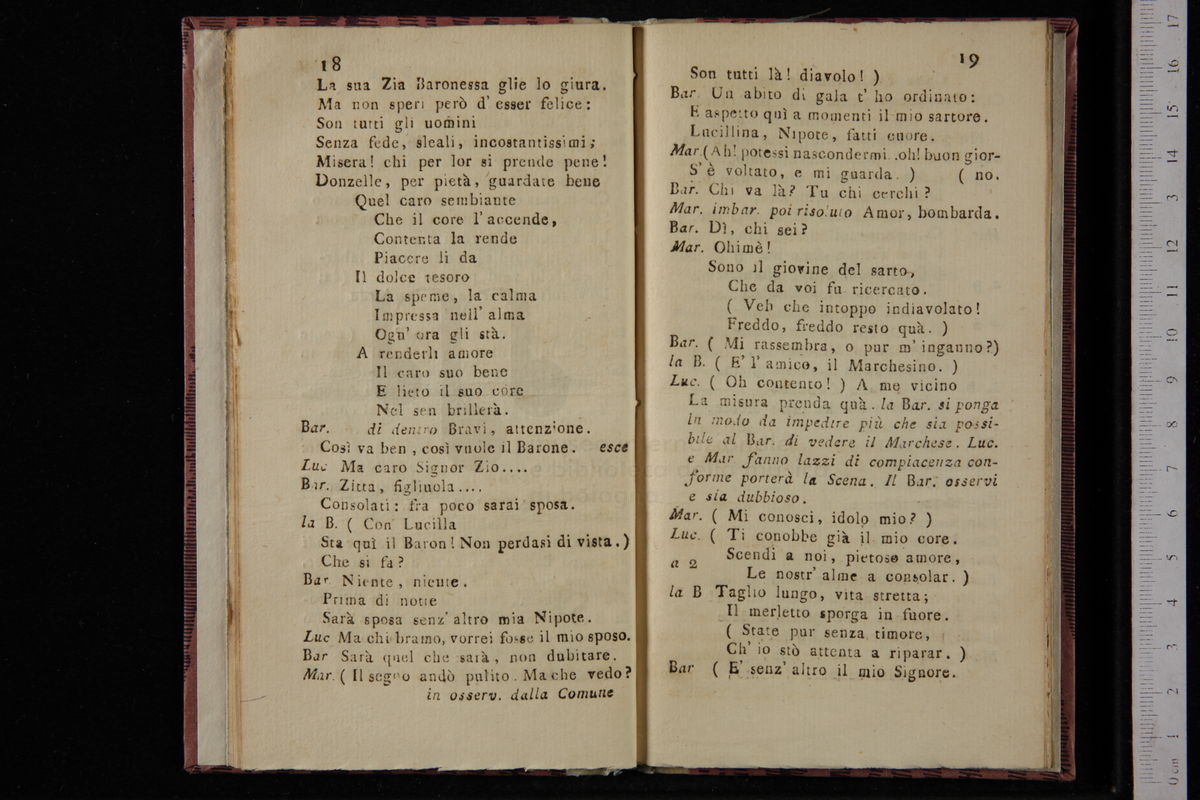 18
La sua Zia Baronessa glie lo giura.
Ma non speri però d' esser felice:
Son tutti gli uomini
Senza fede, sleali, incostantissimi;
Misera! chi per lor si prende pene!
Donzelle, per pietà, guardate bene
Quel caro sembiante
Che il core l' accende,
Contenta la rende
Piacere li da
Il dolce tesoro
La speme, la calma
Impressa nell' alma
Ogn' ora gli stà.
A renderli amore
Il caro suo bene
E lieto il suo core
Nel sen brillerà.
Bar. di dentro Bravi, attenzione.
Così va ben, così vuole il Barone. esce
Luc Ma caro Signor Zio....
Bar. Zitta, figliuola....
Consolati: fra poco sarai sposa.
la B. ( Con Lucilla
Sta quì il Baron! Non perdasi di vista.)
Che si fa?
Bar Niente, niente.
Prima di notte
Sarà sposa senz' altro mia Nipote.
Luc Ma chi bramo, vorrei fosse il mio sposo.
Bar Sarà quel che sarà, non dubitare.
Mar. ( Il segno andò pulito. Ma che vedo?
in osserv. dalla Comune
19
Son tutti là! diavolo! )
Bar. Un abito di gala t' ho ordinato:
E aspetto quì a momenti il mio sartore.
Lucillina, Nipote, fatti cuore.
Mar.(Ah! potessi nascondermi. .oh! buon gior-
S' è voltato, e mi guarda. ) ( no.
Bar. Chi va là? Tu chi cerchi?
Mar. imbar. poi risoluto Amor, bombarda.
Bar. Dì, chi sei?
Mar. Ohimè!
Sono il giovine del sarto,
Che da voi fu ricercato.
( Veh che intoppo indiavolato!
Freddo, freddo resto quà. )
Bar. ( Mi rassembra, o pur m' inganno?)
la B. ( E' l' amico, il Marchesino. )
Luc. ( Oh contento! ) A me vicino
La misura prenda quà. la Bar. si ponga
in modo da impedire più che sia possi-
bile al Bar. di vedere il Marchese. Luc.
e Mar fanno lazzi di compiacenza con-
forme porterà la Scena. Il Bar. osservi
e sia dubbioso.
Mar. ( Mi conosci, idolo mio? )
Luc. ( Ti conobbe già il mio core.
a 2 Scendi a noi, pietoso amore,
Le nostr' alme a consolar. )
la B Taglio lungo, vita stretta;
Il merletto sporga in fuore.
( State pur senza timore,
Ch' io stò attenta a riparar. )
Bar ( E' senz' altro il mio Signore.